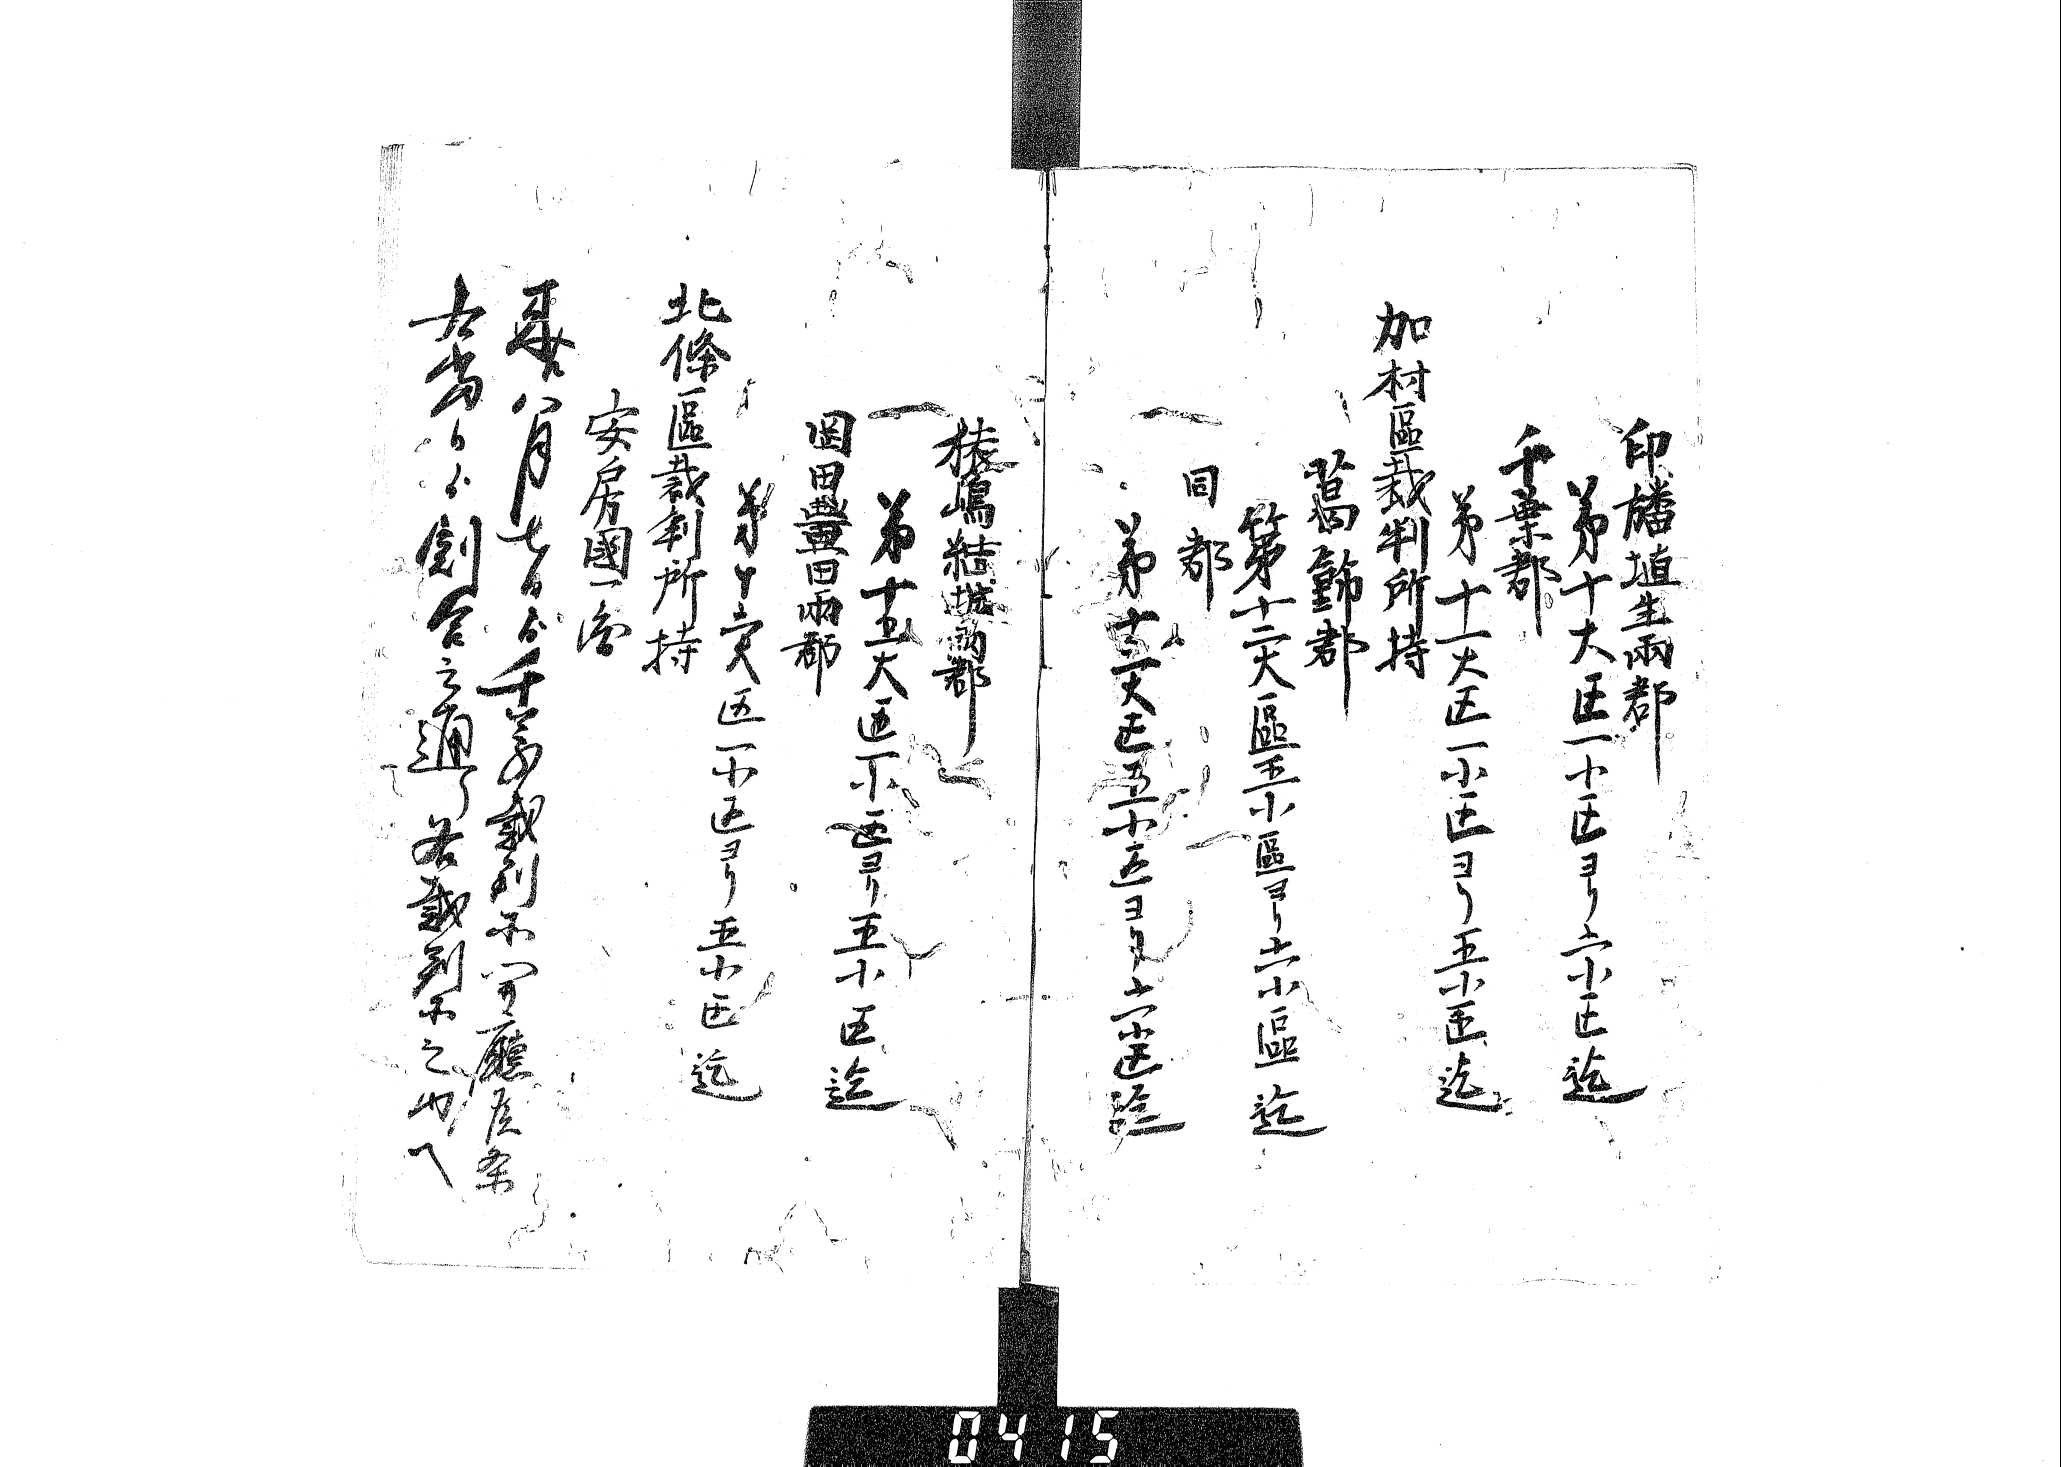 印旛埴生両郡
第十大区一小区ヨリ六小区迄
千葉郡
第十一大区一小区ヨリ五小区迄
加村區裁判所持
葛飾郡
第十二大區五小區ヨリ六小區迄
同郡
第十三大区五小区ヨリ六小区迄
猿嶋結城両郡
第十五大区一小区ヨリ五小区迄
岡田豊田両郡
第十六大区一小区ヨリ五小区迄
北條區裁判所持
安房國一
八月七日千葉裁判所開廳候条
右當分割合之通り各裁判所
0415